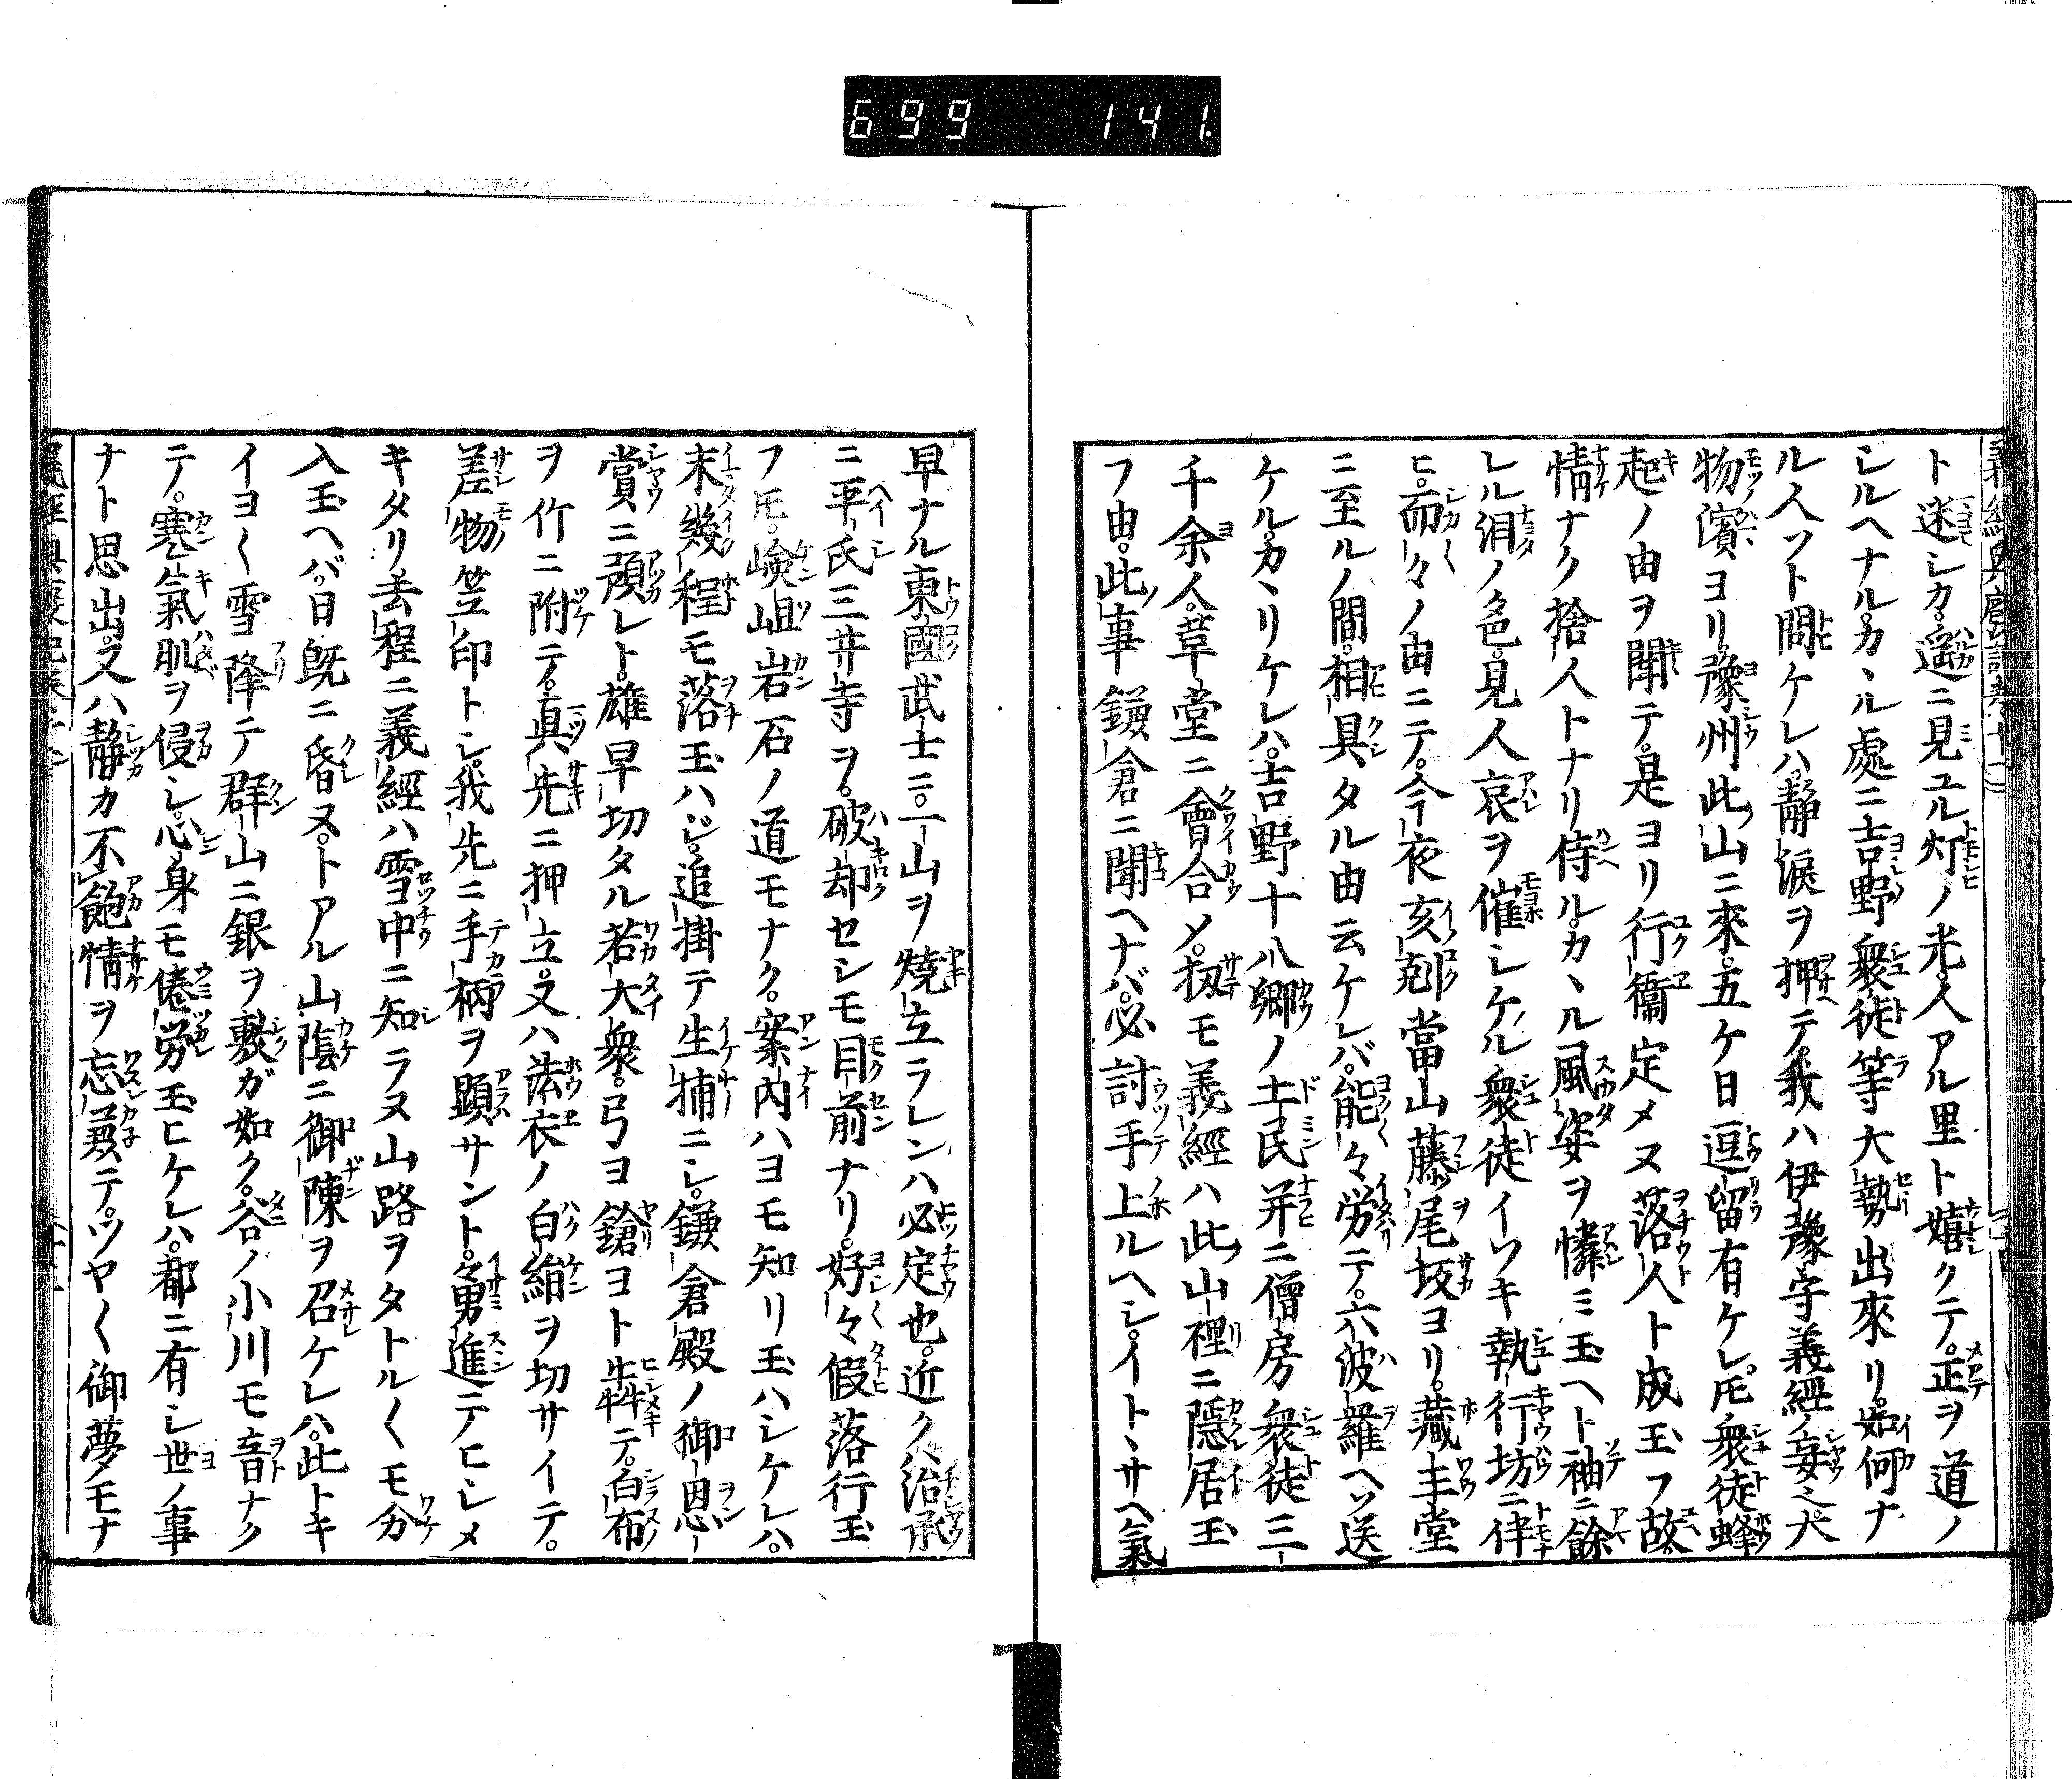 699 141
ト迷シカ。遥ニ見ユル灯ノ光。人アル里ト嬉クテ。正ヲ道ノ
シルヘナル。カヽル處ニ吉野衆徒等大勢出來リ。如何ナ
ル人ソト問ケレハ。靜淚ヲ押テ我ハ伊豫守義經ノ妾
物濱ヨリ豫州此山ニ來。五ケ日逗留有ケレ𪜈衆徒蜂
起ノ由ヲ聞テ。是ヨリ行衞定メヌ落人ト成玉フ故。
情ナク捨人トナリ侍ル。カヽル風姿ヲ憐ミ玉ヘト袖ニ餘
レル泪ノ色。見人哀ヲ催シケル衆徒イソキ執行坊ニ伴
ヒ。而々ノ由ニテ。今夜亥剋當山藤尾坂ヨリ。藏王堂
ニ至ルノ間。相具タル由云ケレバ。能々労テ。六波羅ヘソ送
ケル。カヽリケレハ。吉野十八郷ノ土民并ニ僧房衆徒三
千余人。草堂ニ會合メ。扨モ義經ハ此山裡ニ隱居玉
フ由。此事鎌倉ニ聞ヘナバ。必討手上ルヘシ。イトヽサヘ氣
早ナル東國武士ニ。一山ヲ燒立ラレンハ必定也。近クハ治承
ニ平氏三井寺ヲ。破却セシモ目前ナリ。好々假落行玉
フ𪜈。嶮岨岩石ノ道モナク。案内ハヨモ知リ玉ハシケレハ。
末幾程モ落玉ハジ。追掛テ生捕ニシ。鎌倉殿ノ御恩
賞ニ預レト。雄早切タル若大衆。弓ヨ鎗ヨト犇テ。白布
ヲ竹ニ附テ。眞先ニ押立。又ハ法衣ノ白絹ヲ切サイテ。
差物笠印トシ。我先ニ手柄ヲ顕サント。勇進テヒシメ
キタリ去程ニ義經ハ雪中ニ知ラヌ山路ヲタトル〱モ分
入玉ヘバ。日既ニ昏ヌ。トアル山陰ニ御陳ヲ召ケレハ。此トキ
イヨ〱雪降テ群山ニ銀ヲ敷ガ如ク。谷ノ小川モ音ナク
テ。寒氣肌ヲ侵シ。心身モ倦労玉ヒケレハ。都ニ有シ世ノ事
ナト思出。又ハ靜カ不飽情ヲ忘兼テ。ツヤ〱御夢モナ